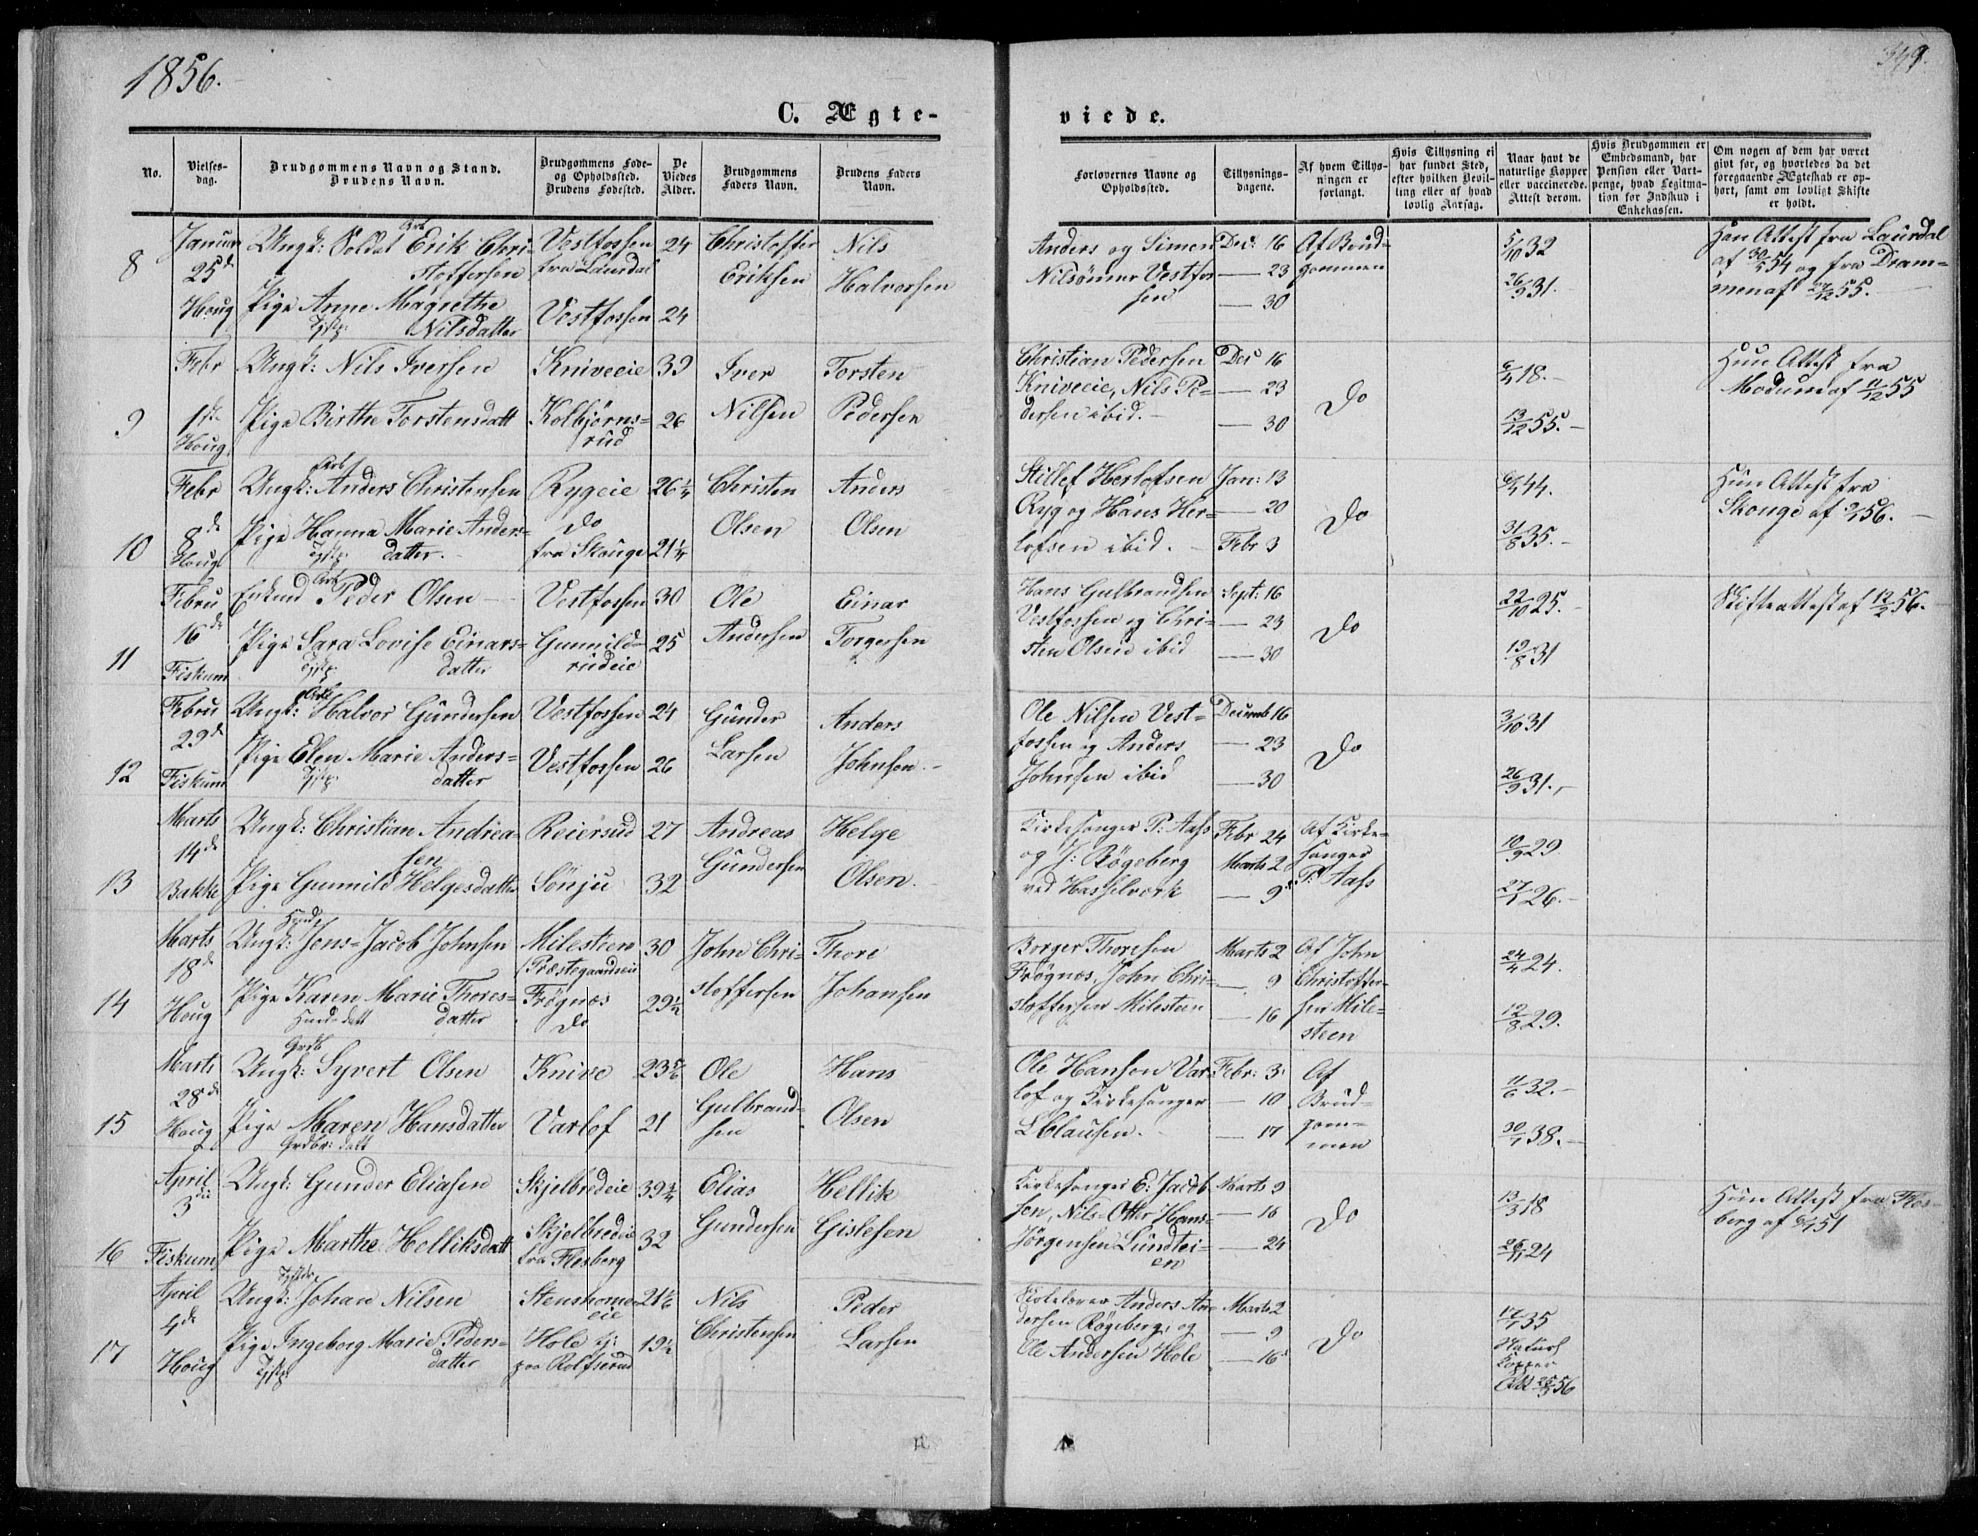 1856.
349.
C. Ægte-
viede.
No.
Vielses-
dag.
Brudgommens Navn og Stand.
Brudens Navn.
Brudgommens Føde-
og Opholdssted.
Brudens Fødested.
De
Viedes
Alder.
Brudgommens
Faders Navn.
Brudens Faders
Navn.
Forlovernes Navne og
Opholdssted.
Tillysnings-
dagene.
Af hvem Tillys-
ningen er
forlangt.
Hvis Tillysning ei
har fundet Sted,
efter hvilken Bevil-
ling eller af hvad
lovlig Aarsag.
Naar havt de
naturlige Kopper
eller vaccinerede.
Attest derom.
Hvis Brudgommen er
Embedsmand, har
Pension eller Vart-
penge, hvad Legitima-
tion for Indskud i
Enkekassen.
Om nogen af dem har været
gift før, og hvorledes da det
foregaaende Ægteskab er op-
hørt, samt om lovligt Skifte
er holdt.
8
Januar
25de
Houg
Arb
Ungk: Soldat Erik Chri-
stoffersen
Pige Anne Magrethe
Tjstp: Nilsdatter
Vestfossen
fra Laurdal
Vestfossen
24
24
Christoffer
Eriksen
Nils
Halvorsen
Anders og Simen
Nilsønner Vestfos-
sen
Dec: 16
— 23
— 30
Af Brud-
gommen
5/10 32
26/9 31.
Han Attest fra Laurdal
af 30/5 54 og fra Dram-
men af 27/12 55.
9
Febr
1ste
Houg
Ungk: Nils Iversen
Pige Birthe Torstensdatt
Kniveeie
Kolbjørns-
rud
39
26
Iver
Nilsen
Torsten
Pedersen
Christian Pedersen
Kniveeie, Nils Pe-
dersen ibid.
Dec 16
— 23
— 30
Do
6/4 18.
13/12 55.
Hun Attest fra
Modum af 11/12 55
10
Febr
8de
Houg
Arb
Ungk: Anders Christensen
Pige Hanna Marie Anders-
Tjstp: datter.
Rygeie
Do
fra Skouge
26 1/4
21 1/4
Christen
Olsen
Anders
Olsen
Stillef Herlofsen
Ryg og Hans Her-
lofsen ibid.
Jan: 13
— 20
Febr 3
Do
6/7 44.
31/8 35.
Hun Attest fra
Skouge af 9/1 56.
11
Febru
16de
Fiskum
Arb
Enkemd Peder Olsen
Pige Sara Lovise Einars-
Tjstp: datter
Vestfossen
Gunnild-
rudeie
30
25
Ole
Andersen
Einar
Torgersen
Hans Gulbrandsen
Vestfossen og Chri-
sten Olsen ibid
Sept: 16
— 23
— 30
Do
22/10 25.
19/8 31
Skifteattest af 12/2 56.
12
Febru
29de
Fiskum
Arb
Ungk: Halvor Gundersen
Pige Elen Marie Anders-
Tjstp: datter
Vestfossen
Vestfossen
24
26
Gunder
Larsen
Anders
Johnsen.
Ole Nilsen Vest-
fossen og Anders
Johnsen ibid
Decemb 16
— 23
— 30
Do
3/10 31
26/9 31.
13
Marts
14de
Bakke
Ungk: Christian Andrea-
sen
Pige Gunnild Helgesdatter
Reiersud
Sønju
27
32
Andreas
Gundersen
Helge
Olsen.
Kirkesanger P: Aass
og J: Bøgeberg
ved Hasselverk
Febr 24
Marts 2
— 9
Af Kirke-
sanger
P: Aass
10/9 29
27/1 26.
14
Marts
18de
Houg
Husmd
Ungk: Jens-Jacob Johnsen
Pige Karen Marie Thores-
Husmds datt datter
Milesteen
Præstegaardseie
Frøgnæs
Do
30
29 1/2
John Chri-
stoffersen
Thore
Johansen
Borger Thoresen
Frøgnæs, John Chri-
stoffersen Milesteen
Marts 2
— 9
— 16
Af John
Christoffer-
sen Mile-
steen
24/4 24.
12/8 29.
15
Marts
28de
Houg
Grdb
Ungk: Syvert Olsen
Pige Maren Hansdatter
Grdbr: datt
Knive
Varlof
23 5/6
21
Ole
Gulbrand-
sen
Hans
Olsen
Ole Hansen Var-
lof og Kirkesanger
L Clausen.
Febr: 3
— 10
— 17
Af
Brud-
gom-
men
11/6 32.
30/1 38.
16
April
3die
Fiskum
Ungk: Gunder Eliasen
Pige Marthe Helliksdatt
Skjelbredeie
Skjelbredeie
fra Flesberg
39 3/4
32
Elias
Gundersen
Hellik
Gislesen
Kirkesanger E: Jacob-
sen, Nils-Otter Hans-
Jørgensen Lundtei-
en
Marts 9
— 16
— 24
Do
13/3 18
25/11 24
Hun Attest fra Fles-
berg af 6/7 51
17
April
4de
Houg
Tjstdr
Ungk: Johan Nilsen
Pige Ingeborg Marie Peders-
Tjstp: datter
Stenshorne-
eie
Hole tj:
paa Rolfserud
21 1/6
19 1/2
Nils
Christensen
Peder
Larsen
Anders An-
dersen Bøgeberg, og
Ole Andersen Hole
Marts 2
— 9
— 16
Do
14/7 35
Naturl
Kopper
Att 25/3 56